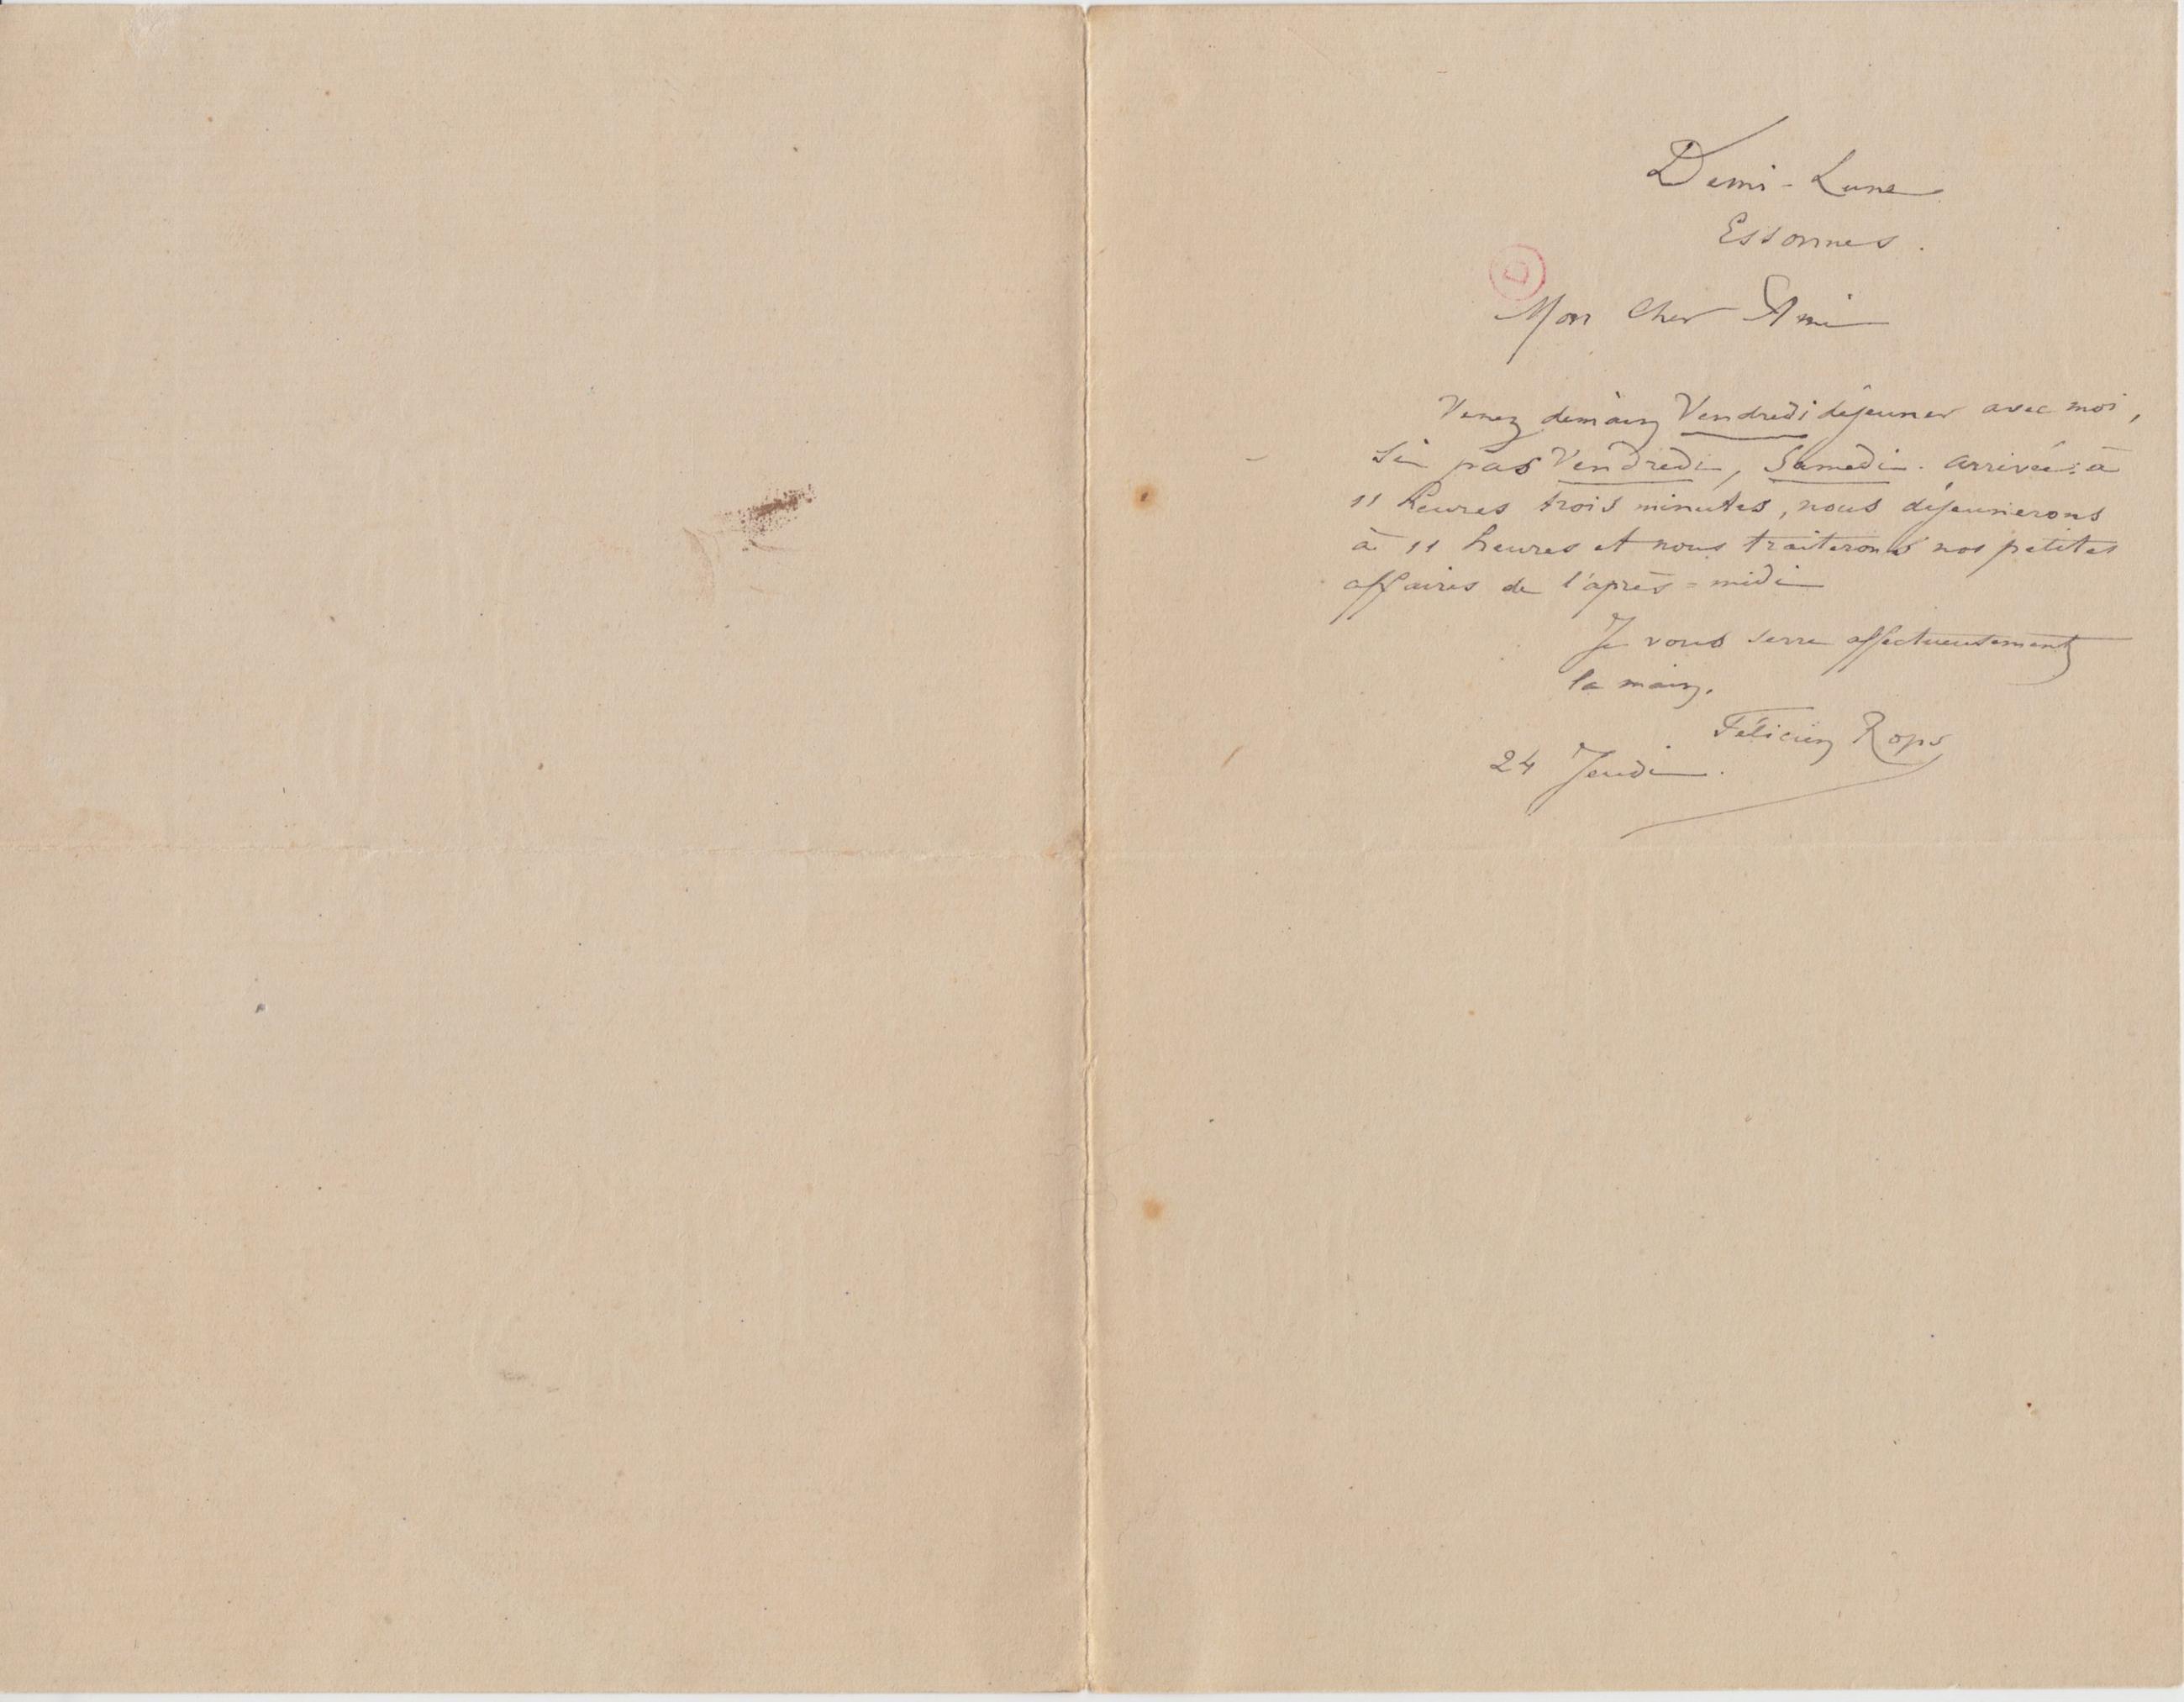 Demi-Lune
Essonnes.
D
Mon Cher Ami
Venez demain Vendredi déjeuner avec moi,
si pas Vendredi, Samedi. arrivée: à
11 heures trois minutes, nous déjeunerons
à 11 heures et nous traiterons nos petites
affaires de l'après=midi
Je vous serre affectueusement
la main.
Félicien Rops
24 Jeudi.